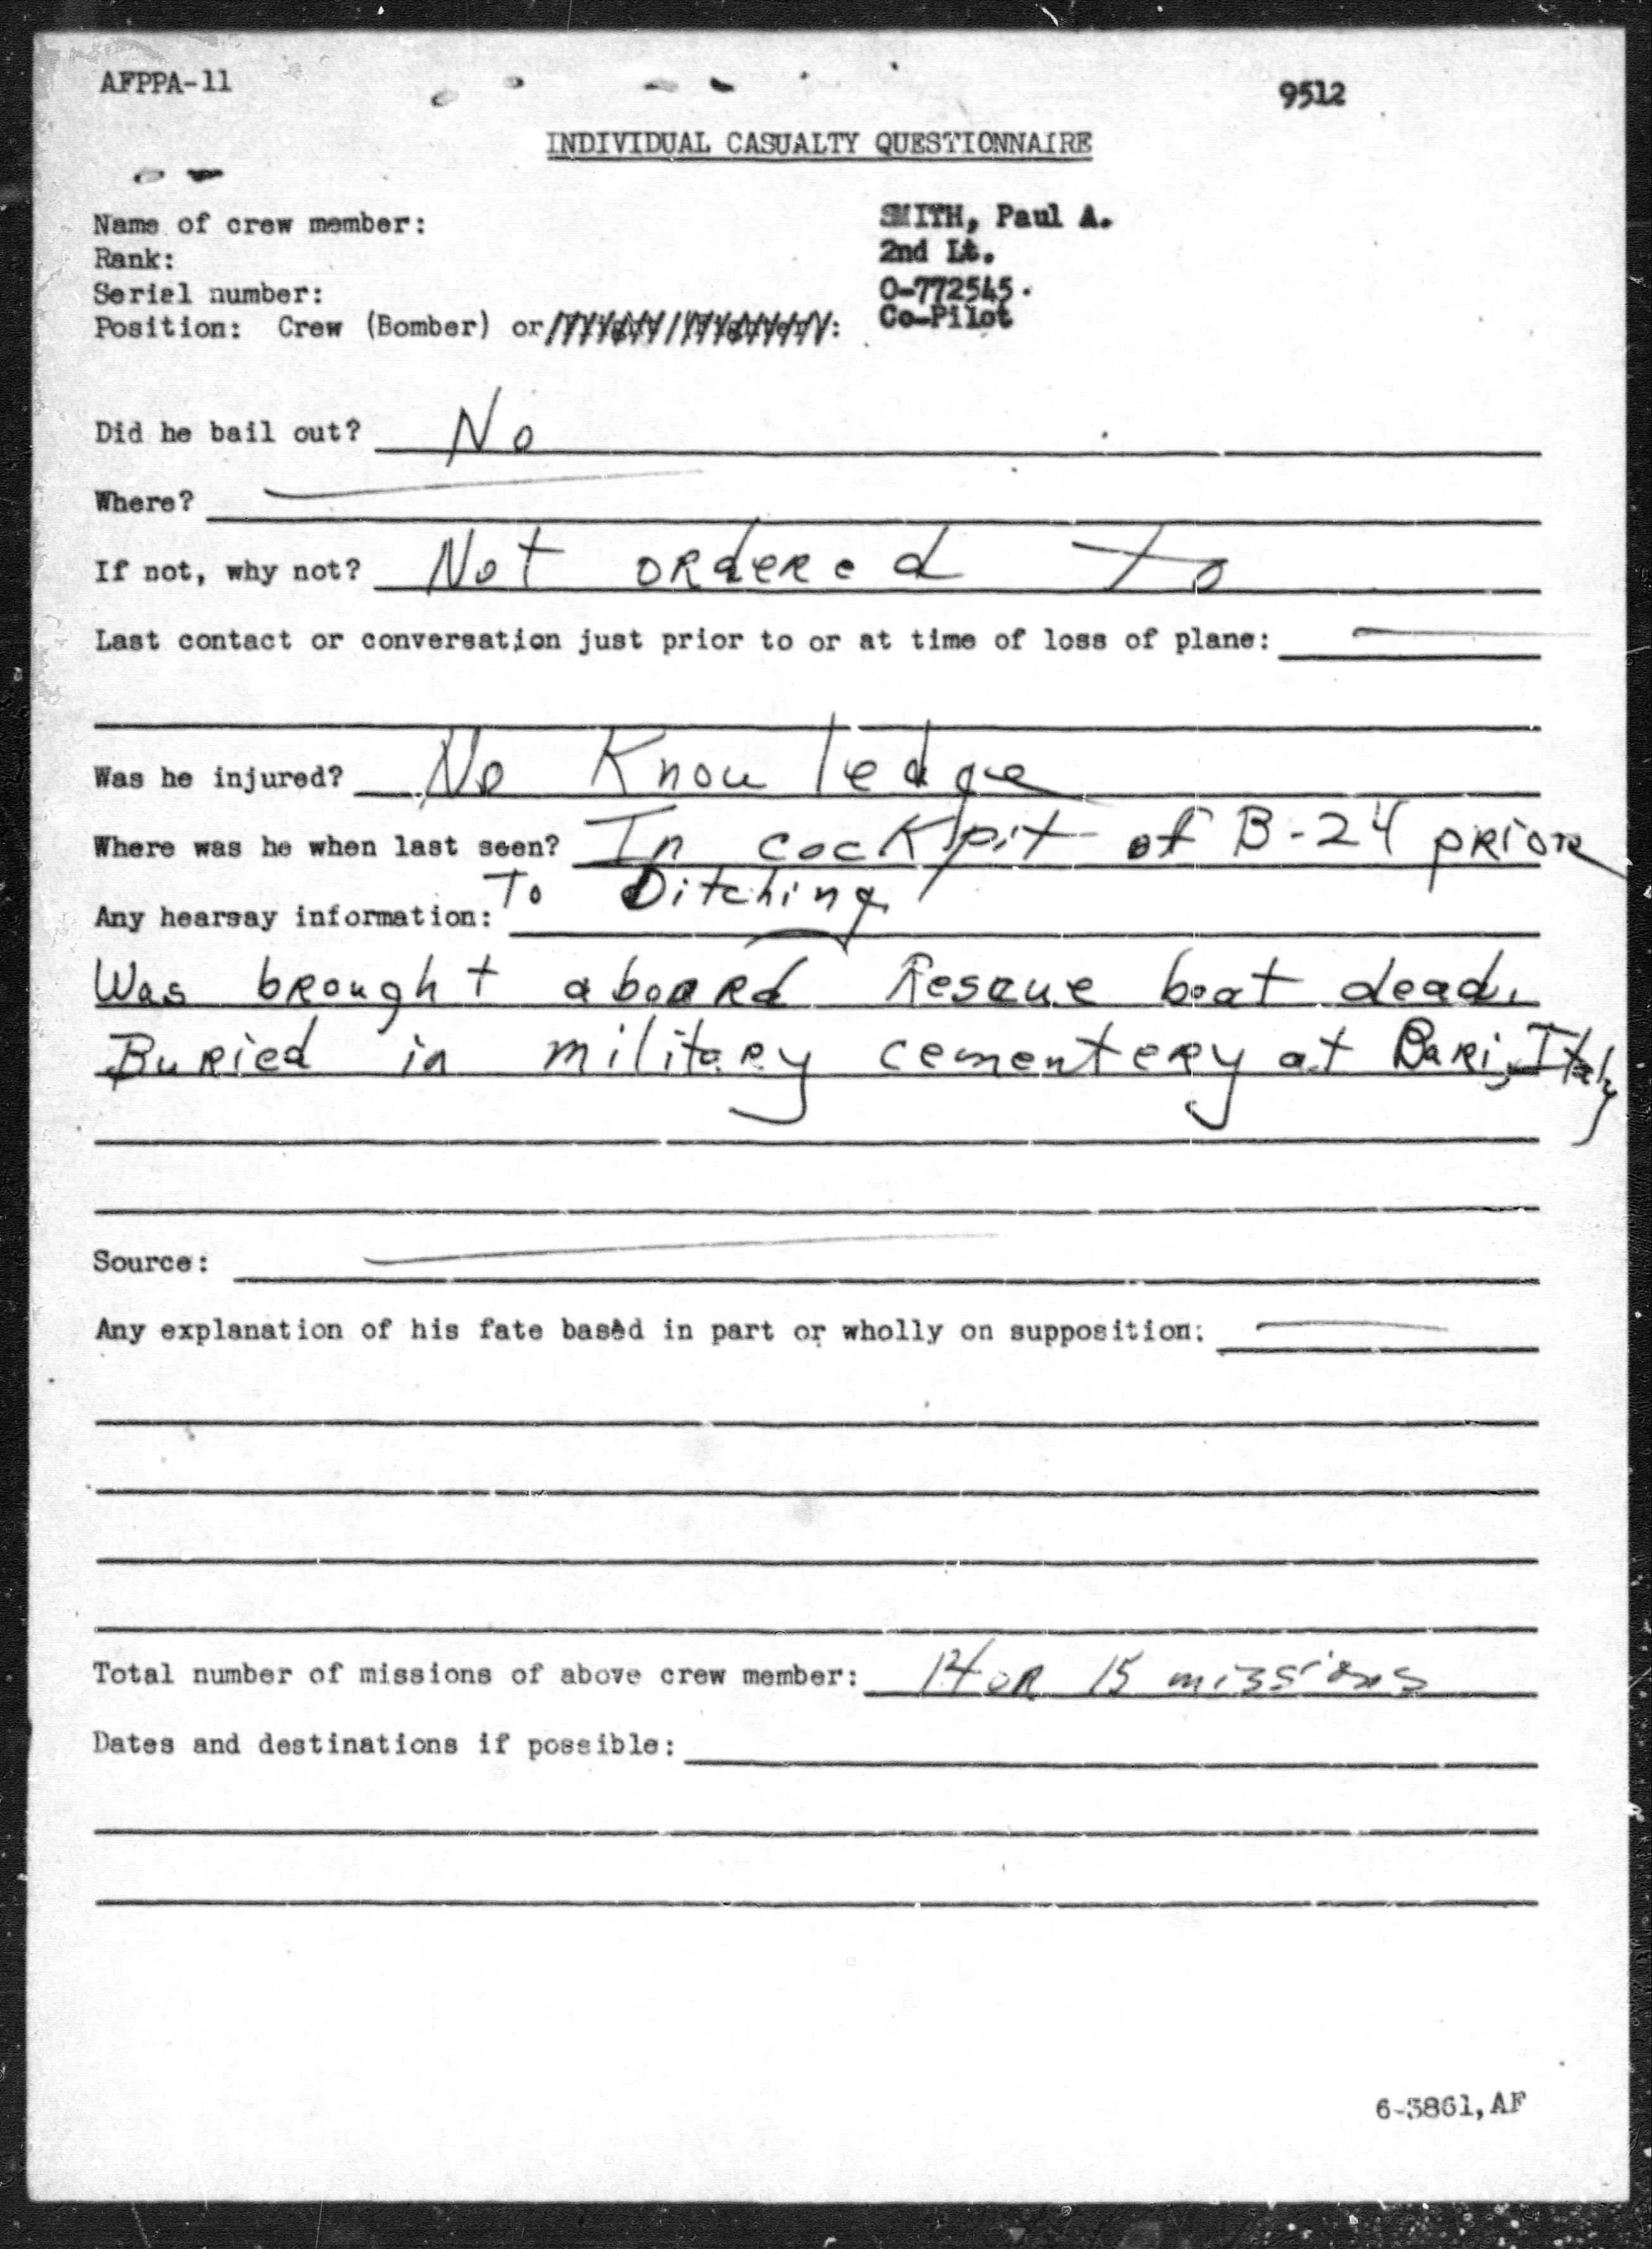 AFPPA-11
9512
INDIVIDUAL CASUALTY QUESTIONNAIRE
Name of crew member: SMITH, Paul A.
Rank: 2nd Lt.
Serial number: O-772545.
Position: Crew (Bomber) or : Co-Pilot
Did he bail out? No
Where?
If not, why not? Not ordered To
Last contact or conversation just prior to or at time of loss of plane:
Was he injured? No Knowledge
Where was he when last seen? In cockpit of B-24 prior
To Ditching
Any hearsay information:
Was brought aboard Rescue boat dead.
Buried in military cementery at Bari, Italy
Source:
Any explanation of his fate based in part or wholly on supposition:
Total number of missions of above crew member: 14 or 15 missions
Dates and destinations if possible:
6-3861,AF